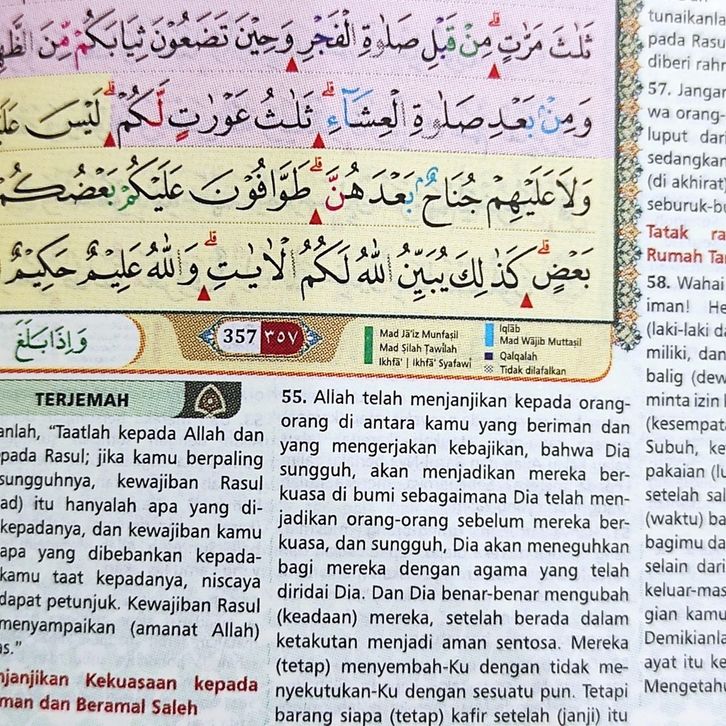 ثَلٰثَ مَرّٰتٍۗ مِنْ قَبْلِ صَلٰوةِ الْفَجْرِ وَحِيْنَ تَضَعُوْنَ ثِيَابَكُمْ مِّنَ
وَمِنْۢ بَعْدِ صَلٰوةِ الْعِشَاۤءِۗ ثَلٰثُ عَوْرٰتٍ لَّكُمْۗ لَيْسَ
وَلَا عَلَيْهِمْ جُنَاحٌۢ بَعْدَهُنَّۗ طَوَّافُوْنَ عَلَيْكُمْ بَعْضُكُمْ
بَعْضٍۗ كَذٰلِكَ يُبَيِّنُ اللّٰهُ لَكُمُ الْاٰيٰتِۗ وَاللّٰهُ عَلِيْمٌ حَكِيْمٌ
وَاِذَا بَلَغَ
357 ٣٥٧
Mad Jā'iz Munfaṣil
Mad Ṣilah Ṭawīlah
Ikhfā' | Ikhfā' Syafawī
Iqlāb
Mad Wājib Muttaṣil
Qalqalah
Tidak dilafalkan
TERJEMAH
"Taatlah kepada Allah dan
Rasul; jika kamu berpaling
kewajiban Rasul
itu hanyalah apa yang di-
kepadanya, dan kewajiban kamu
apa yang dibebankan kepada-
kamu taat kepadanya, niscaya
dapat petunjuk. Kewajiban Rasul
menyampaikan (amanat Allah)
Kekuasaan kepada
dan Beramal Saleh
55. Allah telah menjanjikan kepada orang-
orang di antara kamu yang beriman dan
yang mengerjakan kebajikan, bahwa Dia
sungguh, akan menjadikan mereka ber-
kuasa di bumi sebagaimana Dia telah men-
jadikan orang-orang sebelum mereka ber-
kuasa, dan sungguh, Dia akan meneguhkan
bagi mereka dengan agama yang telah
diridai Dia. Dan Dia benar-benar mengubah
(keadaan) mereka, setelah berada dalam
ketakutan menjadi aman sentosa. Mereka
(tetap) menyembah-Ku dengan tidak me-
nyekutukan-Ku dengan sesuatu pun. Tetapi
barang siapa (tetap) kafir setelah (janji) itu
tunaikanla
pada Rasu
diberi rahr
57. Jangar
wa orang-
luput dari
sedangkan
(di akhirat)
seburuk-bu
Tatak ra
Rumah Tar
58. Wahai
iman! He
(laki-laki da
miliki, dan
balig (dew
minta izin
(kesempata
Subuh, ke
pakaian (lu
setelah sal
(waktu) ba
bagimu da
selain dari
keluar-mas
gian kamu
Demikianla
ayat itu ke
Mengetahu